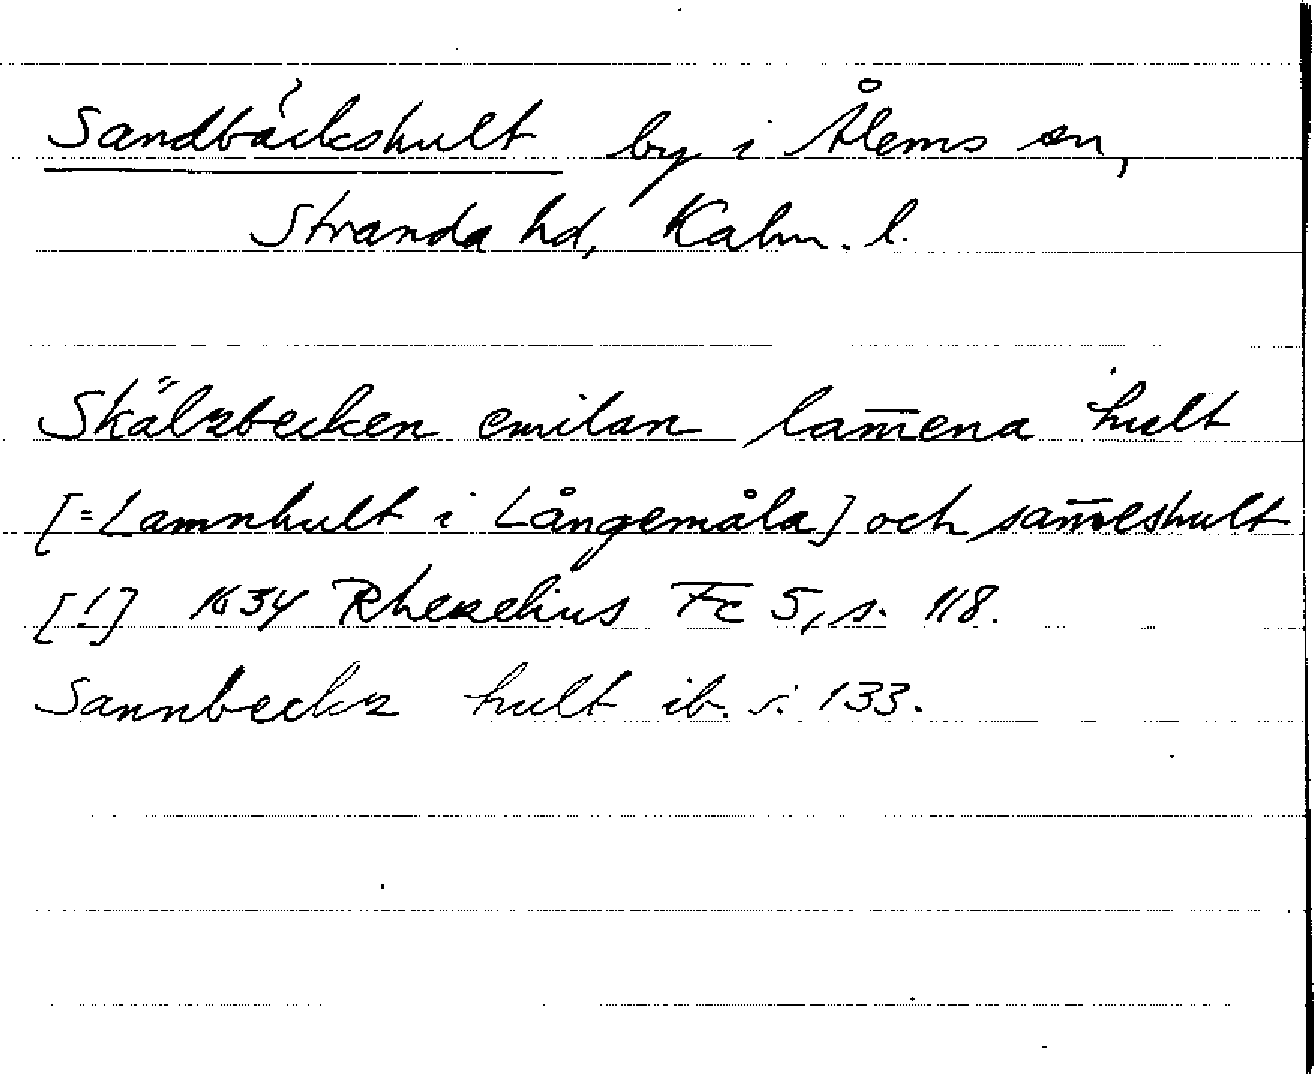 Sandbäckshult by i Ålems sn,
Stranda hd, Kalm. l.
Skälzbecken emilan lam̅ena hult
[=Lamnhult i Långemåla] och sam̅elshult
[!] 1634 Rhezelius Fc 5, s. 118.
Sannbeckz hult ib. s. 133.